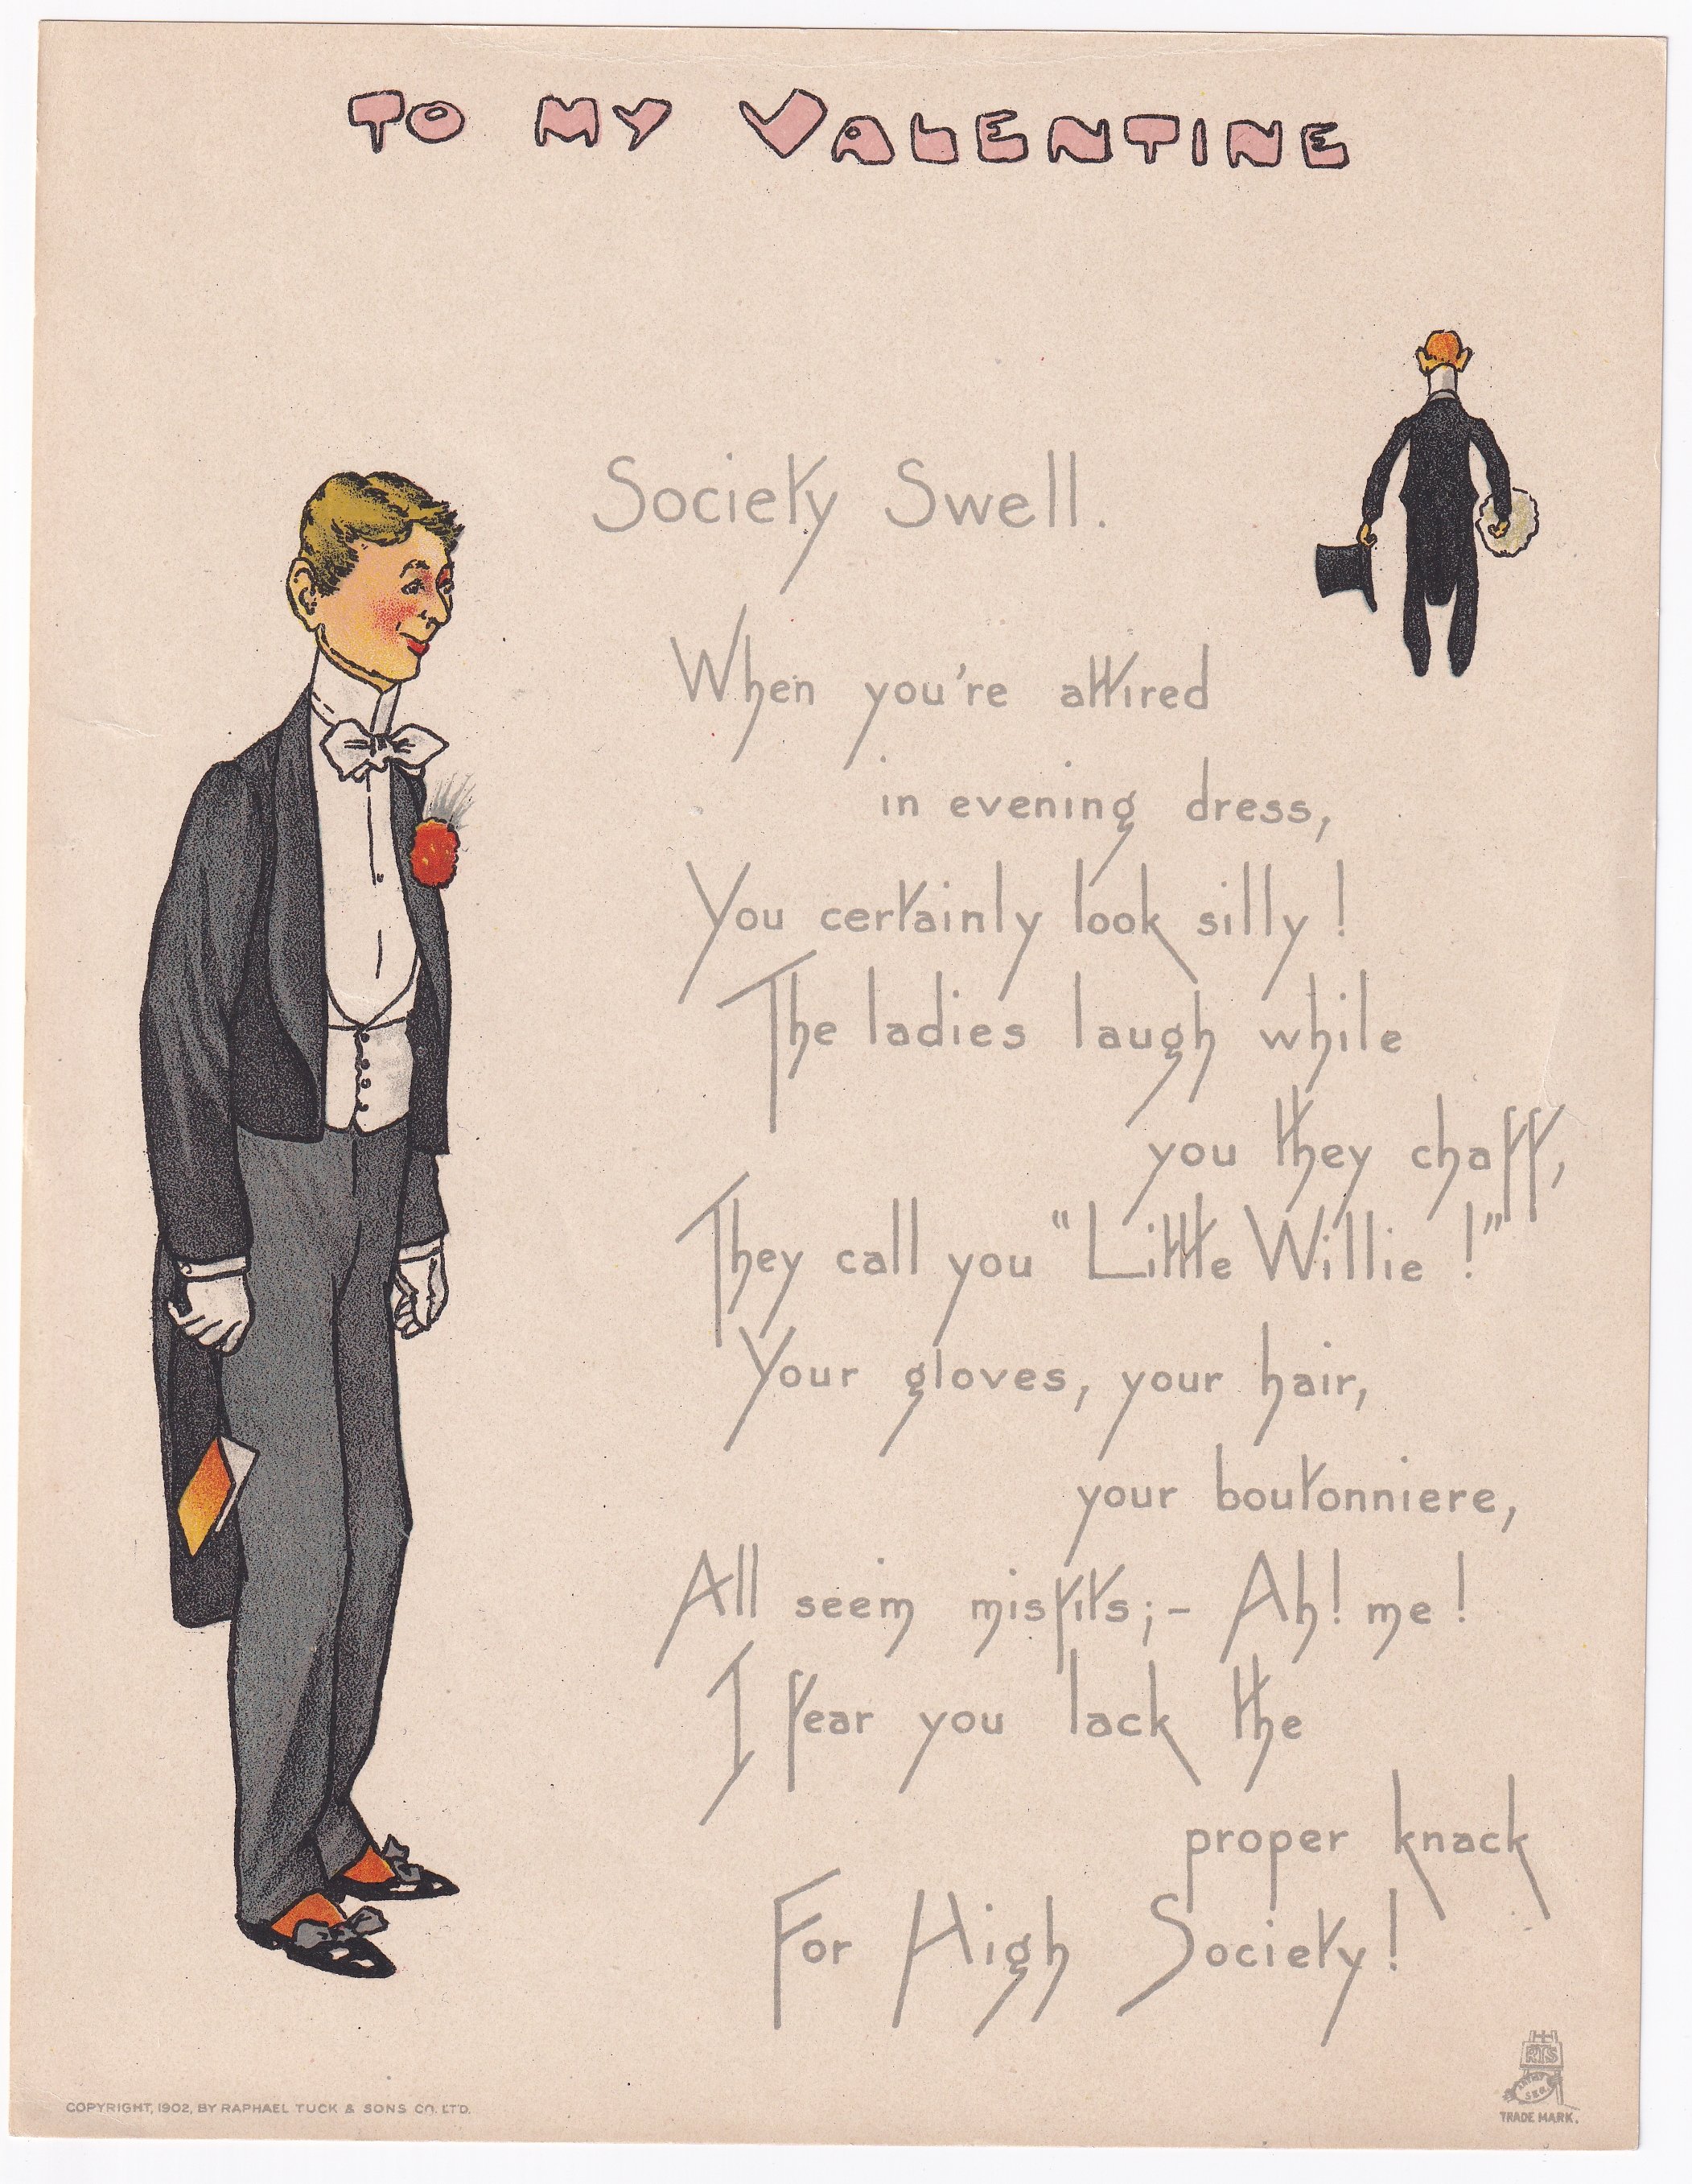 TO MY VALENTINE
Society Swell.
When you're attired
in evening dress,
You certainly look silly!
The ladies laugh while
you they chaff,
They call you "Little Willie!"
Your gloves, your hair,
your boutonniere,
All seem misfits;- Ah! me!
I fear you lack the
proper knack
For High Society!
RTS
TRADE MARK.
COPYRIGHT, 1902, BY RAPHAEL TUCK & SONS CO. LT'D.